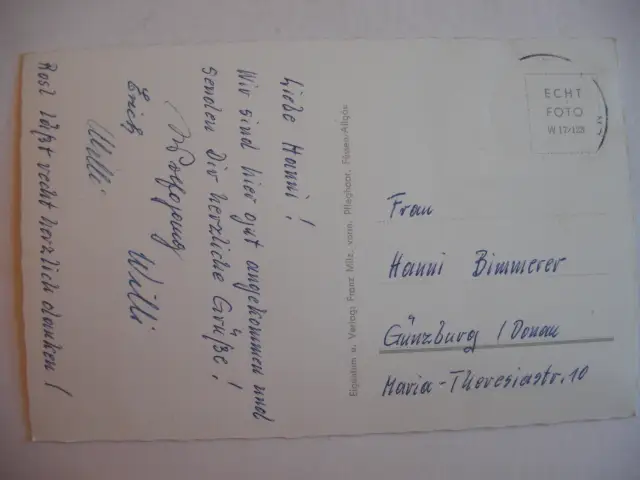 Liebe Hanni!
Wir sind hier gut angekommen und
senden Dir herzliche Grüße!
Wolfgang
Erich
Willi
Willi
Rosl läßt recht herzlich danken!
Eigentum u. Verlag: Franz Milz, vorm. Pfleghaar, Füssen/Allgäu
ECHT
FOTO
Frau
Hanni Bimmerer
Günzburg / Donau
Maria-Theresiastr. 10